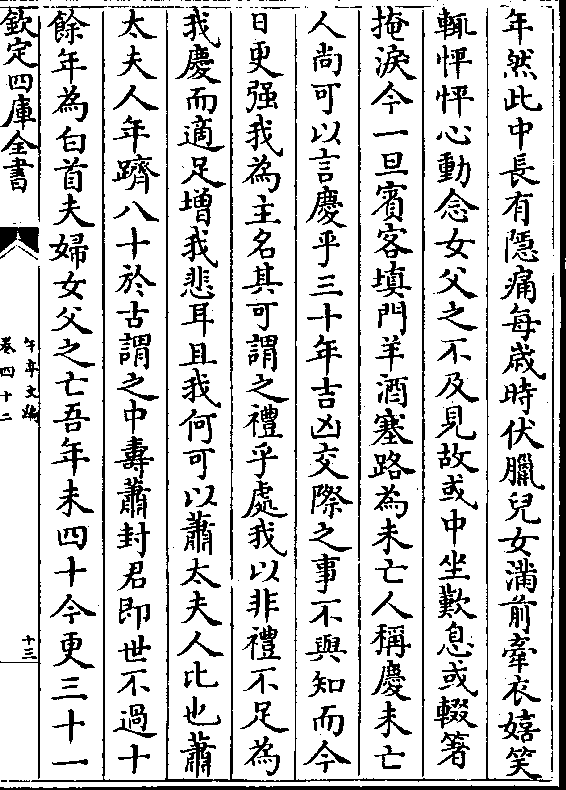 年然此中長有隱痛每歲時伏臘兒女滿前牽衣嬉笑
輒怦怦心動念女父之不及見故或中坐歎息或輟箸
掩淚今一旦賓客填門羊酒塞路為未亡人稱慶未亡
人尚可以言慶乎三十年吉凶交際之事不與知而今
日更强我為主名其可謂之禮乎處我以非禮不足為
我慶而適足增我悲耳且我何可以蕭太夫人比也蕭
太夫人年躋八十於古謂之中壽蕭封君即世不過十
餘年為白首夫婦女父之亡吾年未四十今更三十一
欽定四庫全書
午亭文編
卷四十二
十三